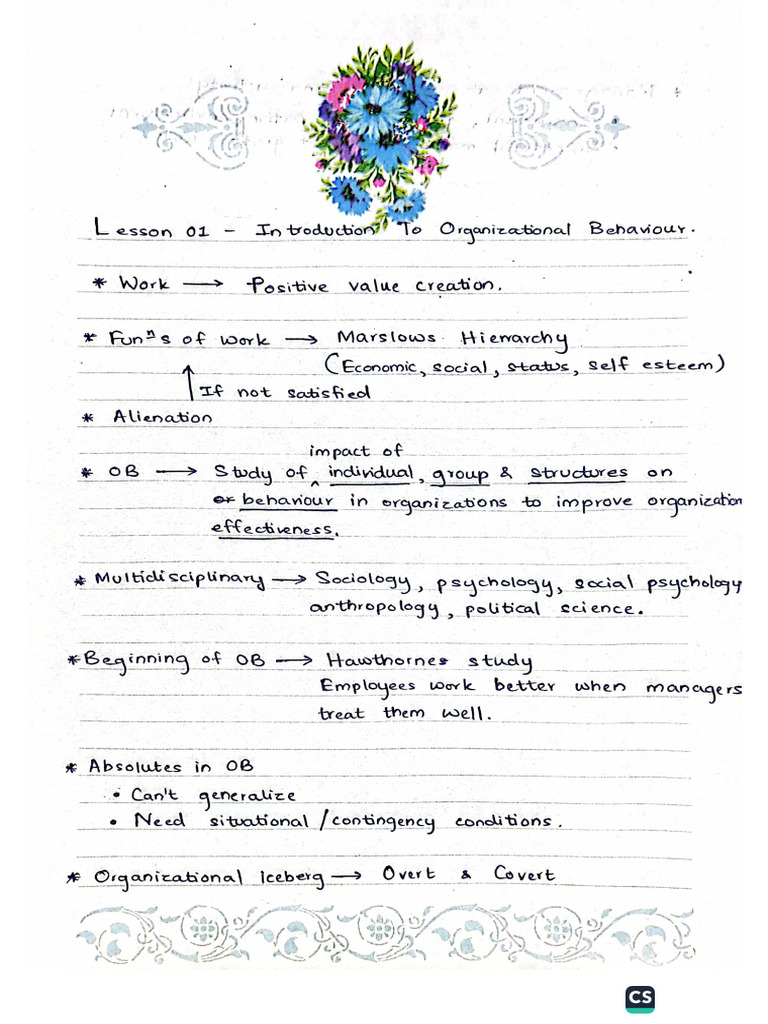 Lesson 01 - Introduction To Organizational Behaviour.
* Work → Positive value creation.
* Funⁿs of work → Marslows Hierarchy
(Economic, social, status, self esteem)
↑ If not satisfied
* Alienation
impact of
* OB → Study of ^ individual, group & structures on
or behaviour in organizations to improve organization
effectiveness.
* Multidisciplinary → Sociology, psychology, social psychology
anthropology, political science.
* Beginning of OB → Hawthornes study
Employees work better when managers
treat them well.
* Absolutes in OB
• Can't generalize
• Need situational / contingency conditions.
* Organizational Iceberg → Overt & Covert
CS